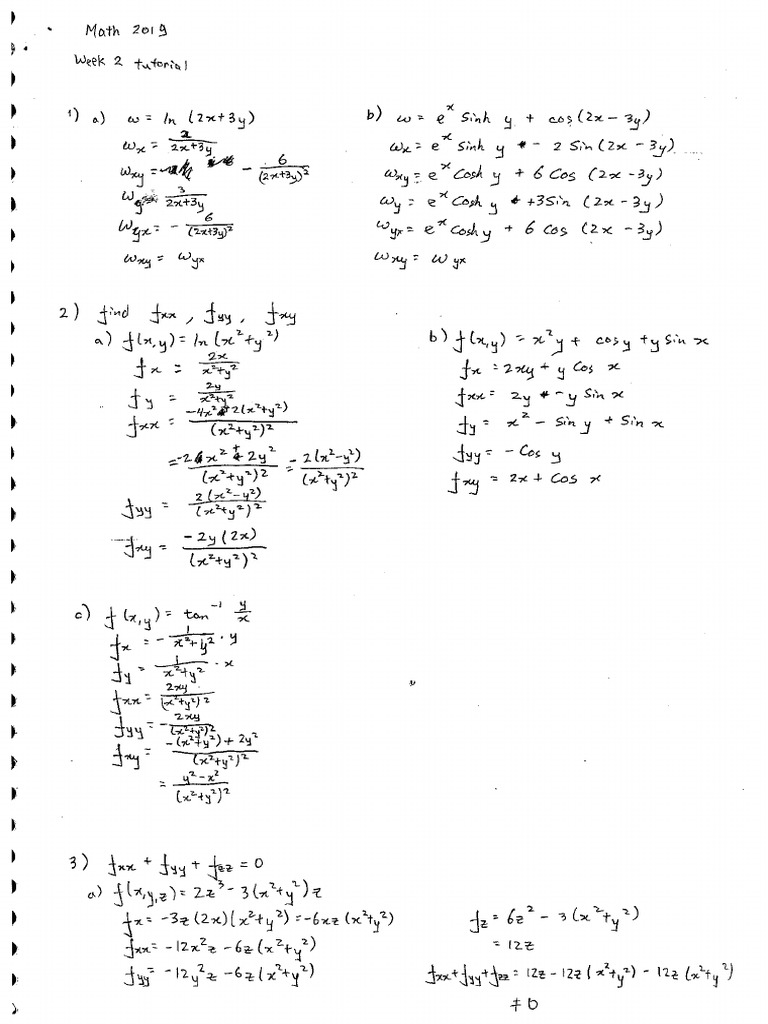 Math 2019
Week 2 tutorial
1) a) w = ln (2x+3y)
wx = 2/(2x+3y)
wxy = - 6/(2x+3y)²
wy = 3/(2x+3y)
wyx = - 6/(2x+3y)²
wxy = wyx
b) w = e^x Sinh y + cos(2x - 3y)
wx = e^x Sinh y - 2 Sin (2x - 3y)
wxy = e^x Cosh y + 6 Cos (2x - 3y)
wy = e^x Cosh y +3Sin (2x - 3y)
wyx = e^x Cosh y + 6 Cos (2x - 3y)
wxy = wyx
2) find fxx, fyy, fxy
a) f(x,y) = ln(x²+y²)
fx = 2x/(x²+y²)
fy = 2y/(x²+y²)
fxx = (-4x²+2(x²+y²))/(x²+y²)²
= (-2x² + 2y²)/(x²+y²)² = -2(x²-y²)/(x²+y²)²
fyy = 2(x²-y²)/(x²+y²)²
fxy = -2y(2x)/(x²+y²)²
b) f(x,y) = x²y + cosy + y Sin x
fx = 2xy + y Cos x
fxx = 2y - y Sin x
fy = x² - Sin y + Sin x
fyy = - Cos y
fxy = 2x + Cos x
c) f(x,y) = tan⁻¹ y/x
fx = - 1/(x²+y²) · y
fy = 1/(x²+y²) · x
fxx = 2xy/(x²+y²)²
fyy = - 2xy/(x²+y²)²
fxy = (-(x²+y²) + 2y²)/(x²+y²)²
= (y²-x²)/(x²+y²)²
3) fxx + fyy + fzz = 0
a) f(x,y,z) = 2z³ - 3(x²+y²)z
fx = -3z(2x)(x²+y²) = -6xz(x²+y²)
fxx = -12x²z - 6z(x²+y²)
fyy = -12y²z - 6z(x²+y²)
fz = 6z² - 3(x²+y²)
= 12z
fxx+fyy+fzz = 12z - 12z(x²+y²) - 12z(x²+y²)
≠ 0